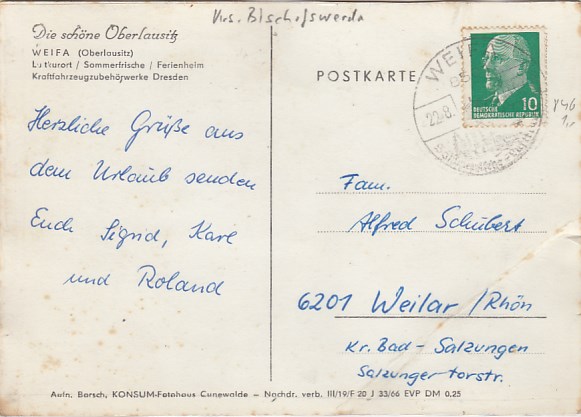 Krs. Bischofswerda
Die schöne Oberlausitz
WEIFA (Oberlausitz)
Luftkurort / Sommerfrische / Ferienheim
Kraftfahrzeugzubehörwerke Dresden
Herzliche Grüße aus
dem Urlaub senden
Euch Sigrid, Karl
und Roland
POSTKARTE
WEIFA
22.8.
DEUTSCHE
DEMOKRATISCHE REPUBLIK
10
1,-
Fam.
Alfred Schubert
6201 Weilar /Rhön
Kr. Bad-Salzungen
Salzungertorstr.
Aufn. Borsch, KONSUM-Fotohaus Cunewalde – Nachdr. verb. III/19/F 20 J 33/66 EVP DM 0,25